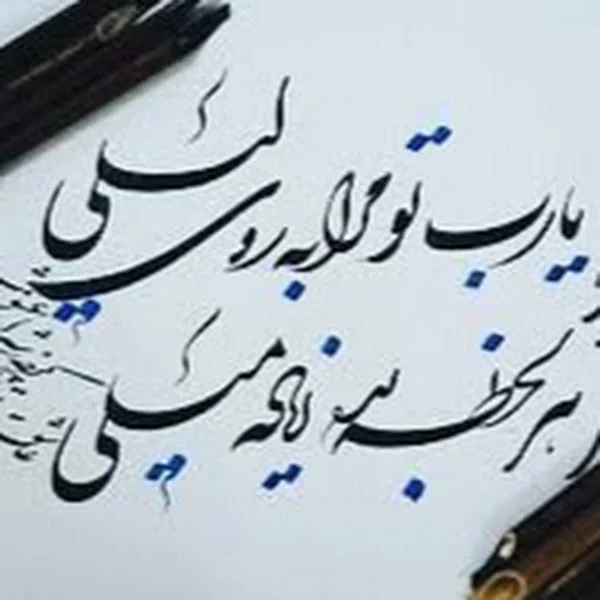 یارب تو مرا به روی لیلی
هر لحظه بده زیاده میلی